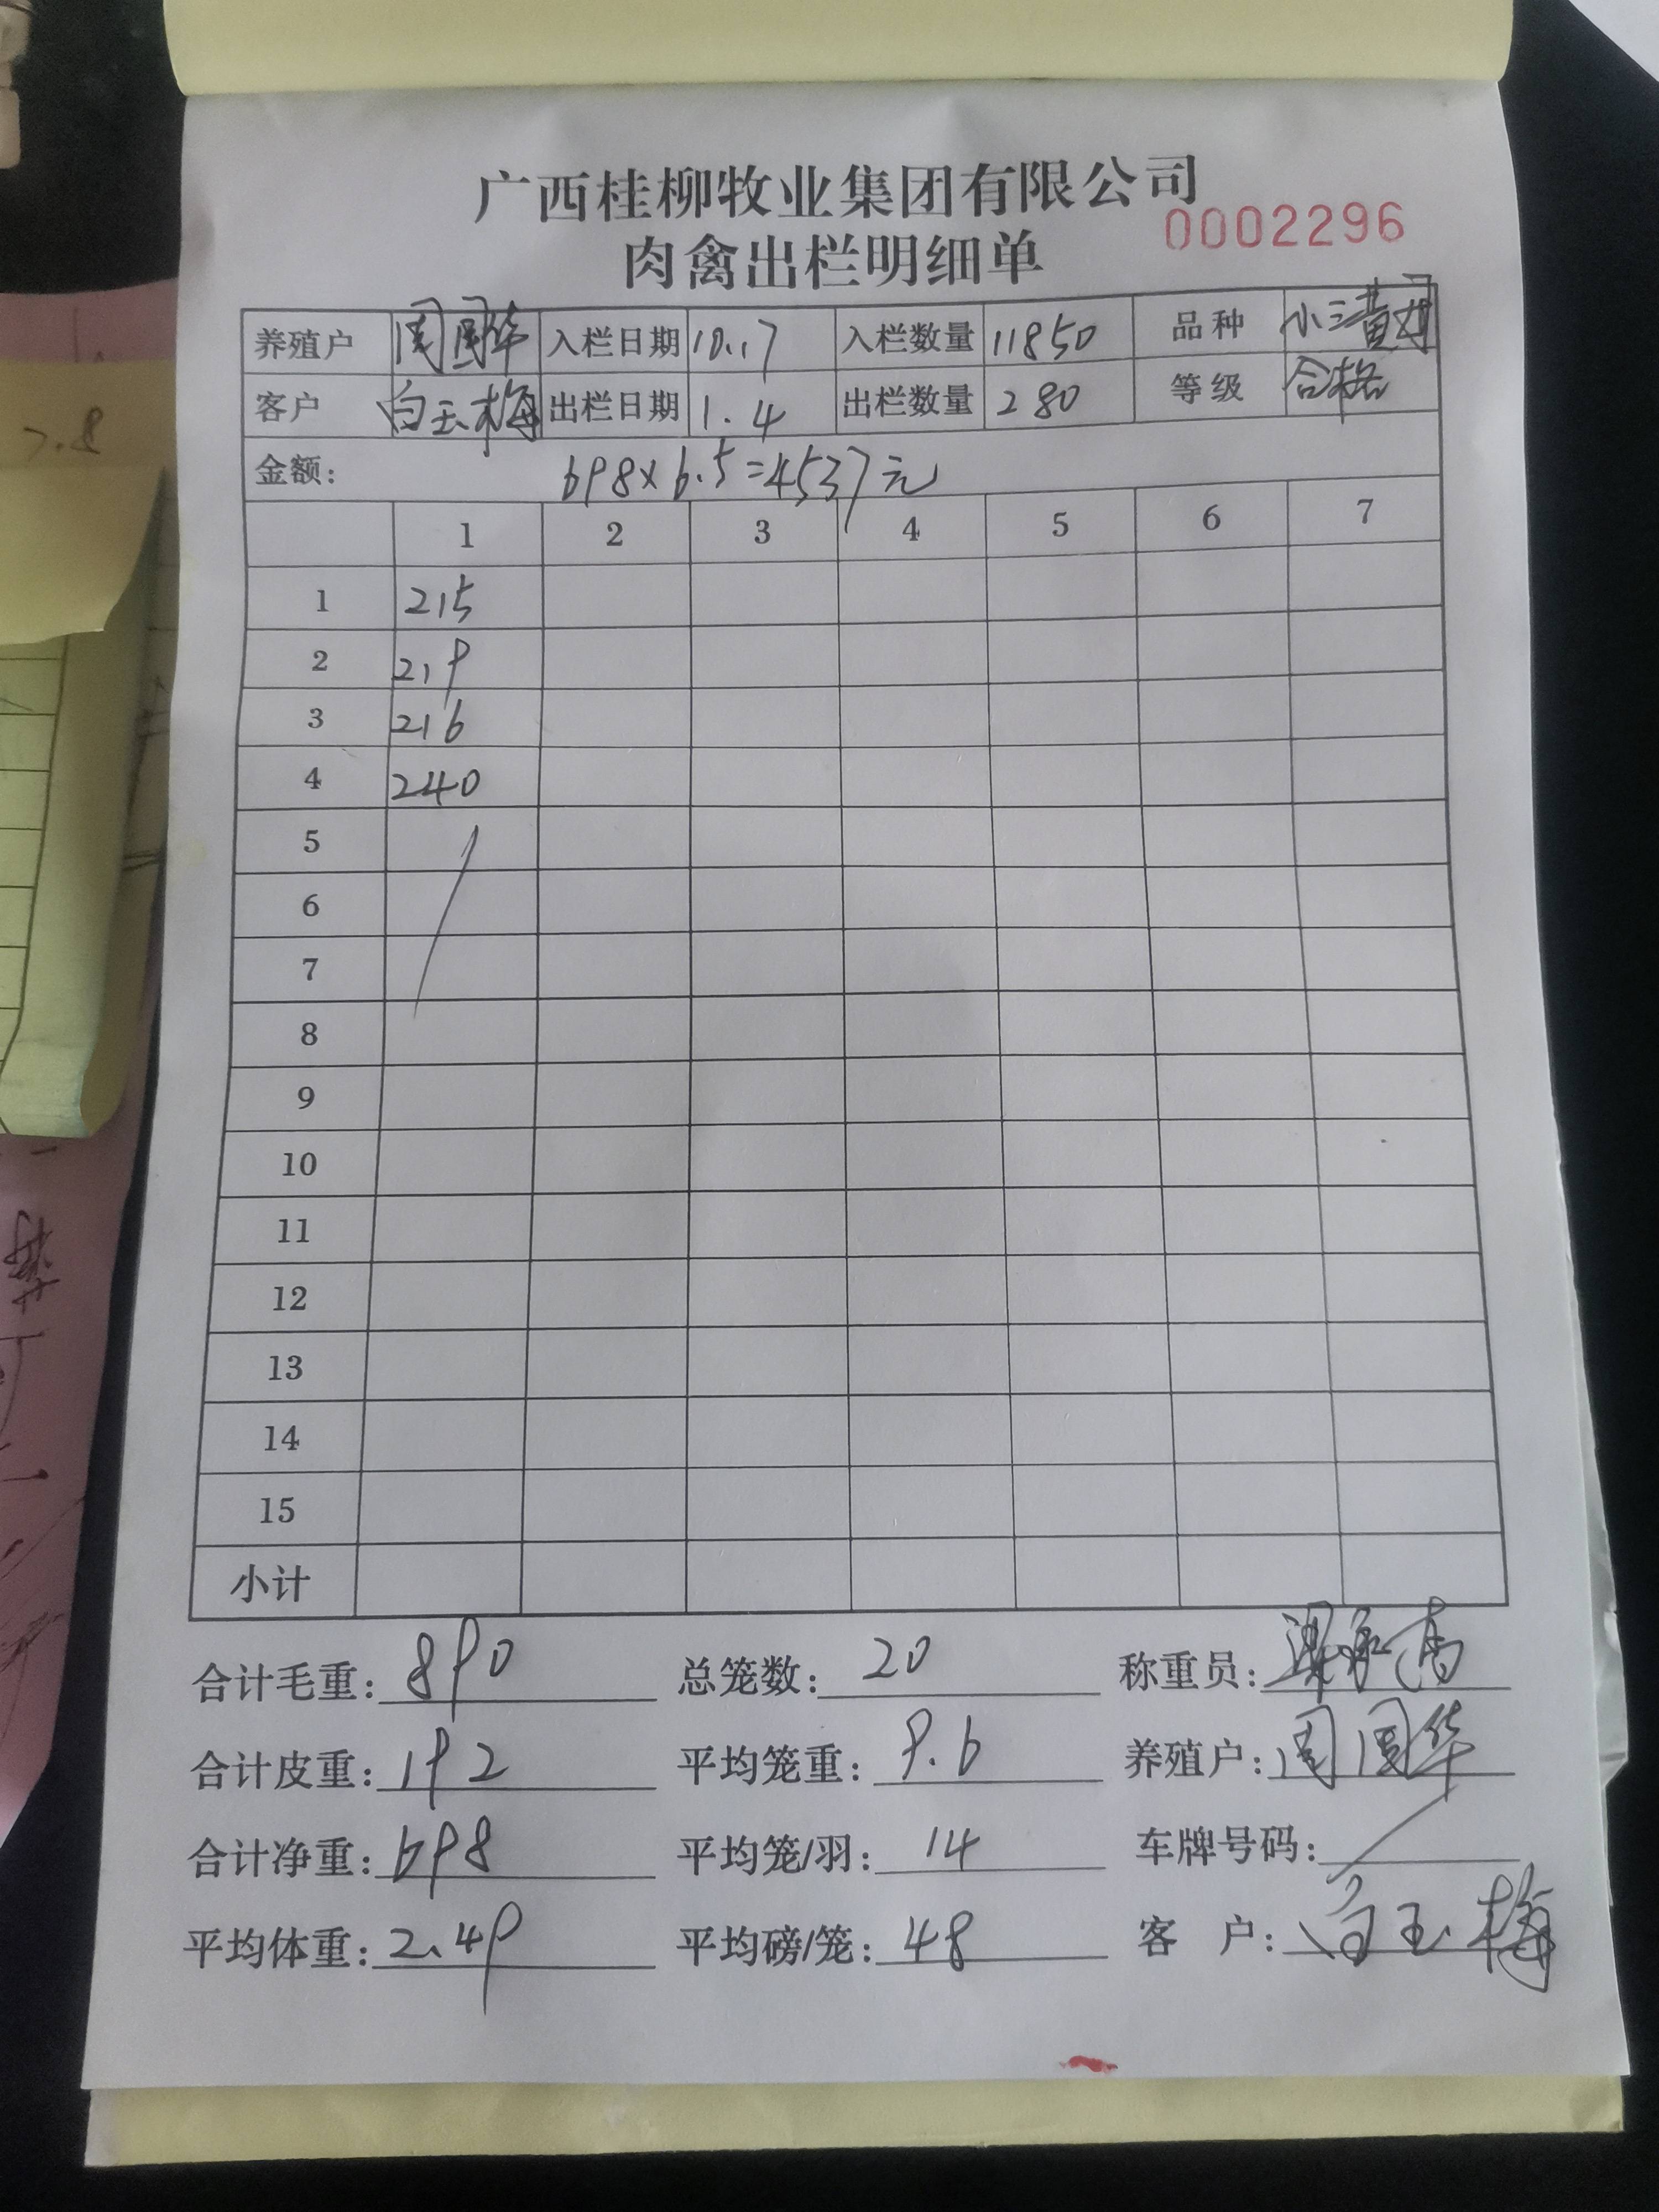 广西桂柳牧业集团有限公司
0002296
肉禽出栏明细单
养殖户 周国华 入栏日期 10.17 入栏数量 11850 品种 小三黄母
客户 白玉梅 出栏日期 1.4 出栏数量 280 等级 合格
7.8
金额: 698×6.5=4537元
1 2 3 4 5 6 7
1 215
2 219
3 216
4 240
5
6
7
8
9
10
11
12
13
14
15
小计
合计毛重: 890 总笼数: 20 称重员: 梁
合计皮重: 192 平均笼重: 9.6 养殖户: 周国华
合计净重: 698 平均笼/羽: 14 车牌号码:
平均体重: 2.49 平均磅/笼: 48 客 户: 白玉梅